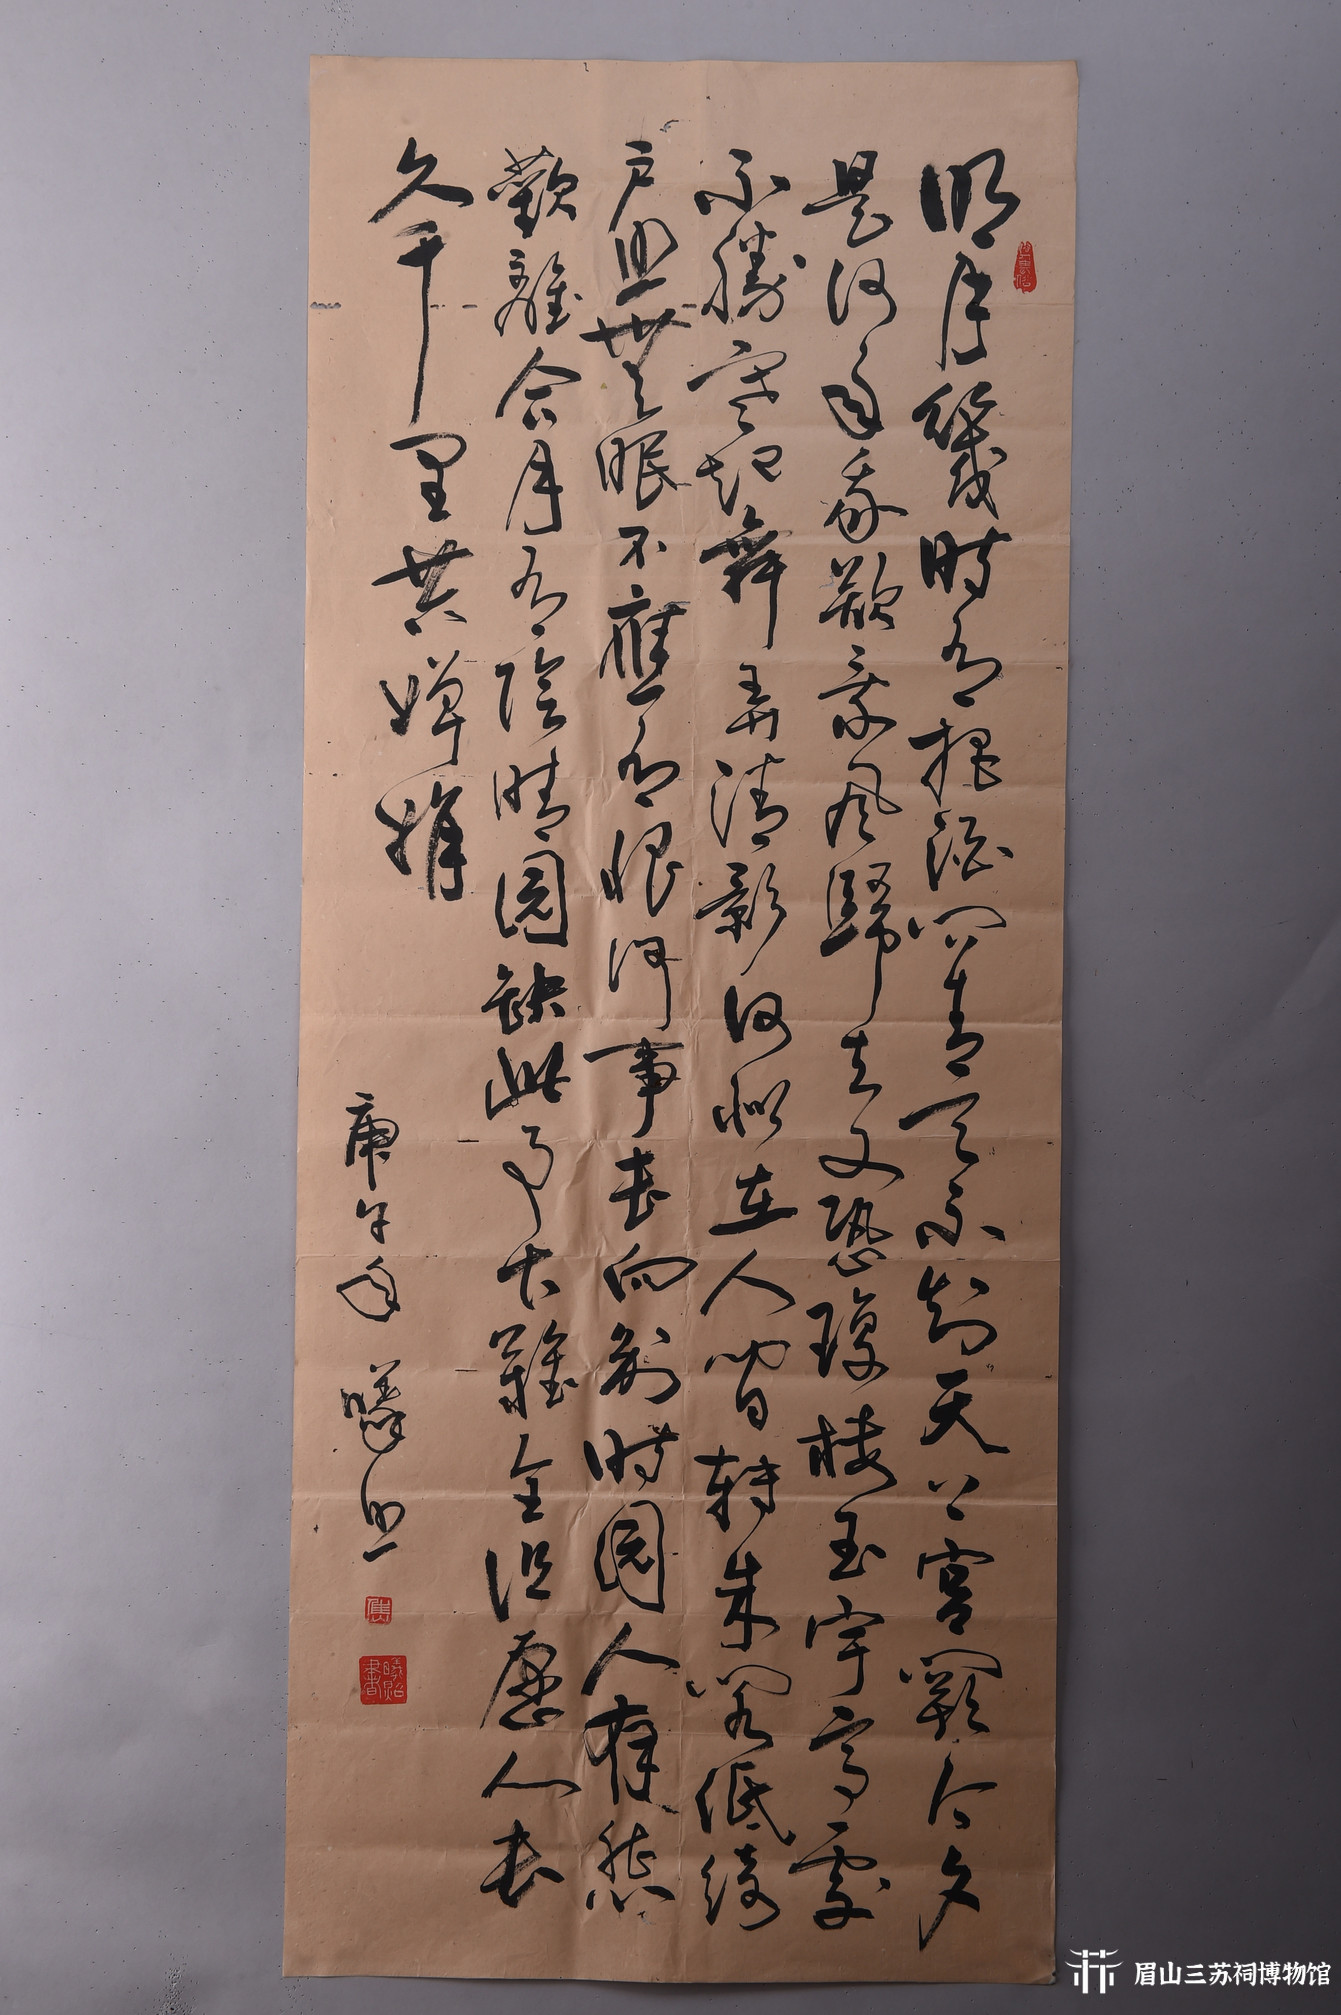 明月幾時有把酒問青天不知天上宮闕今夕
是何年我欲乘风歸去又恐瓊樓玉宇高處
不勝寒起舞弄清影何似在人間轉朱閣低綺
户照無眠不應有恨何事長向別時圓人有悲
歡離合月有陰晴圓缺此事古難全但愿人長
久千里共嬋娟
庚午年 曦照
眉山三苏祠博物馆